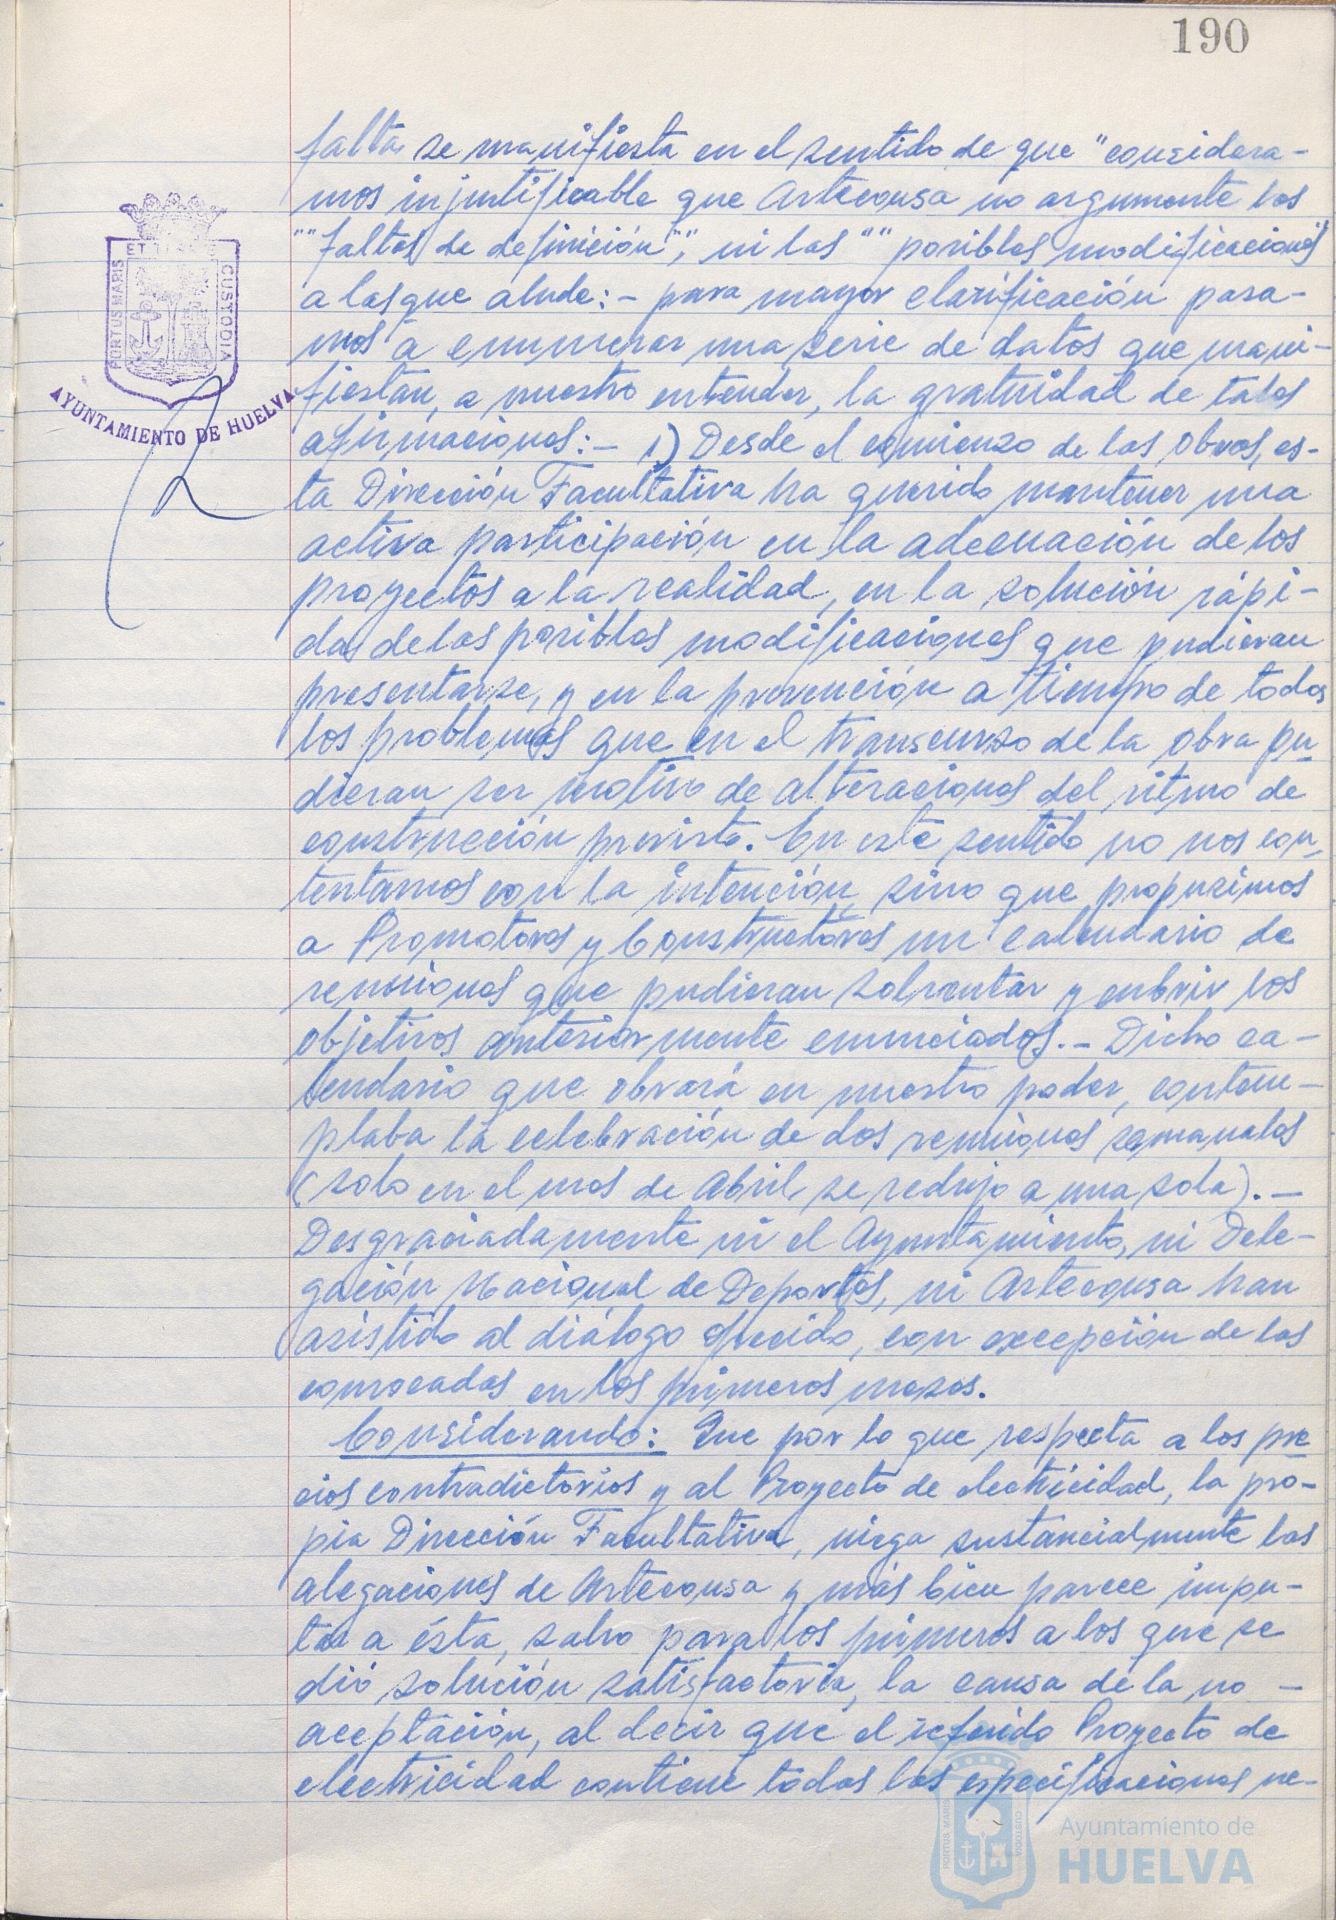 190
falta, se manifiesta en el sentido de que "considera-
mos injustificable que Artecousa no argumente las
""faltas de definición"", ni las "" posibles modificaciones"
a las que alude:- para mayor clarificación pasa-
mos a enumerar una serie de datos que mani-
fiestan, a nuestro entender, la gratuidad de tales
afirmaciones:- 1) Desde el comienzo de las obras, es-
ta Dirección Facultativa ha querido mantener una
activa participación en la adecuación de los
proyectos a la realidad, en la solución rápi-
da de las posibles modificaciones que pudieran
presentarse, y en la prevención a tiempo de todos
los problemas que en el transcurso de la obra pu-
dieran ser motivo de alteraciones del ritmo de
construcción previsto. En este sentido no nos con-
tentamos con la intención, sino que propusimos
a Promotores y Constructores un calendario de
reuniones que pudieran solventar y cubrir los
objetivos anteriormente enunciados.- Dicho ca-
lendario que obrará en nuestro poder, contem-
plaba la celebración de dos reuniones semanales
(solo en el mes de Abril, se redujo a una sola).-
Desgraciadamente ni el Ayuntamiento, ni Dele-
gación Nacional de Deportes, ni Artecousa han
asistido al diálogo ofrecido, con excepción de las
convocadas en los primeros meses.
Considerando: Que por lo que respecta a los pre
cios contradictorios y al Proyecto de electricidad, la pro-
pia Dirección Facultativa, niega sustancialmente las
alegaciones de Artecousa y más bien parece impu-
tar a ésta, salvo para los primeros a los que se
dió solución satisfactoria, la causa de la no -
aceptación, al decir que el referido Proyecto de
electricidad contiene todas las especificaciones ne-
PORTUS MARIS
ET
CUSTODIA
AYUNTAMIENTO DE HUELVA
PORTUS MARIS
CUSTODIA
Ayuntamiento de
HUELVA